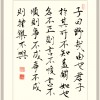 子曰野哉由也君子
於其所不知蓋闕如也
名不正則言不順言不
順則事不成事不成
則禮樂不興